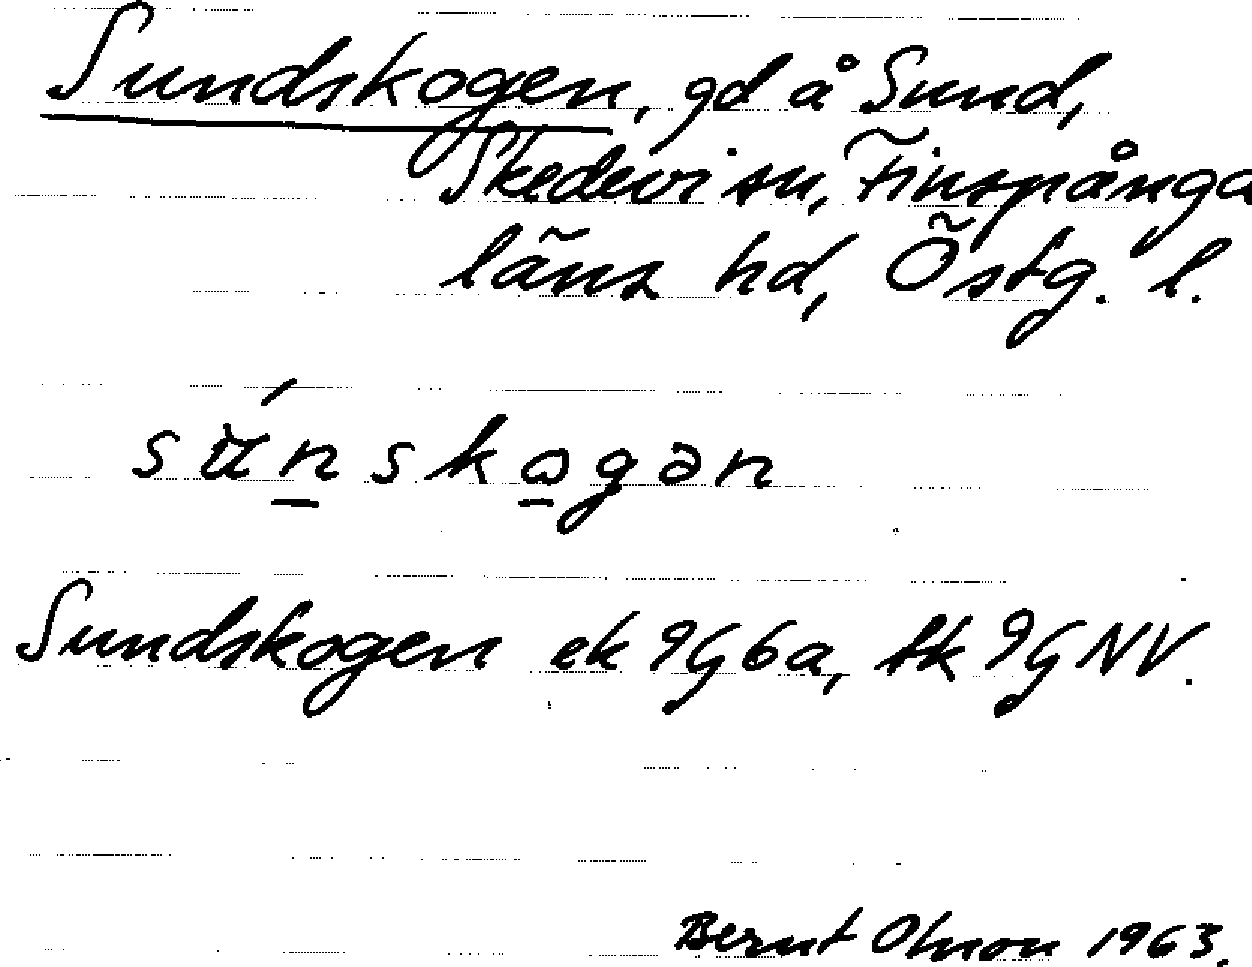 Sundskogen, gd å Sund,
Skedevi sn, Finspånga
läns hd, Östg. l.
sún̲skɷ̲gən
Sundskogen ek 9G6a, tk 9GNV.
Bernt Olsson 1963.